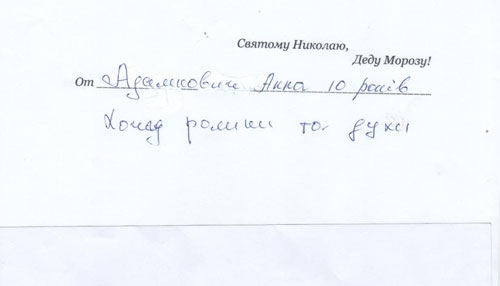 Святому Николаю,
Деду Морозу!
От Адамкович Анна 10 років
ролики та духи